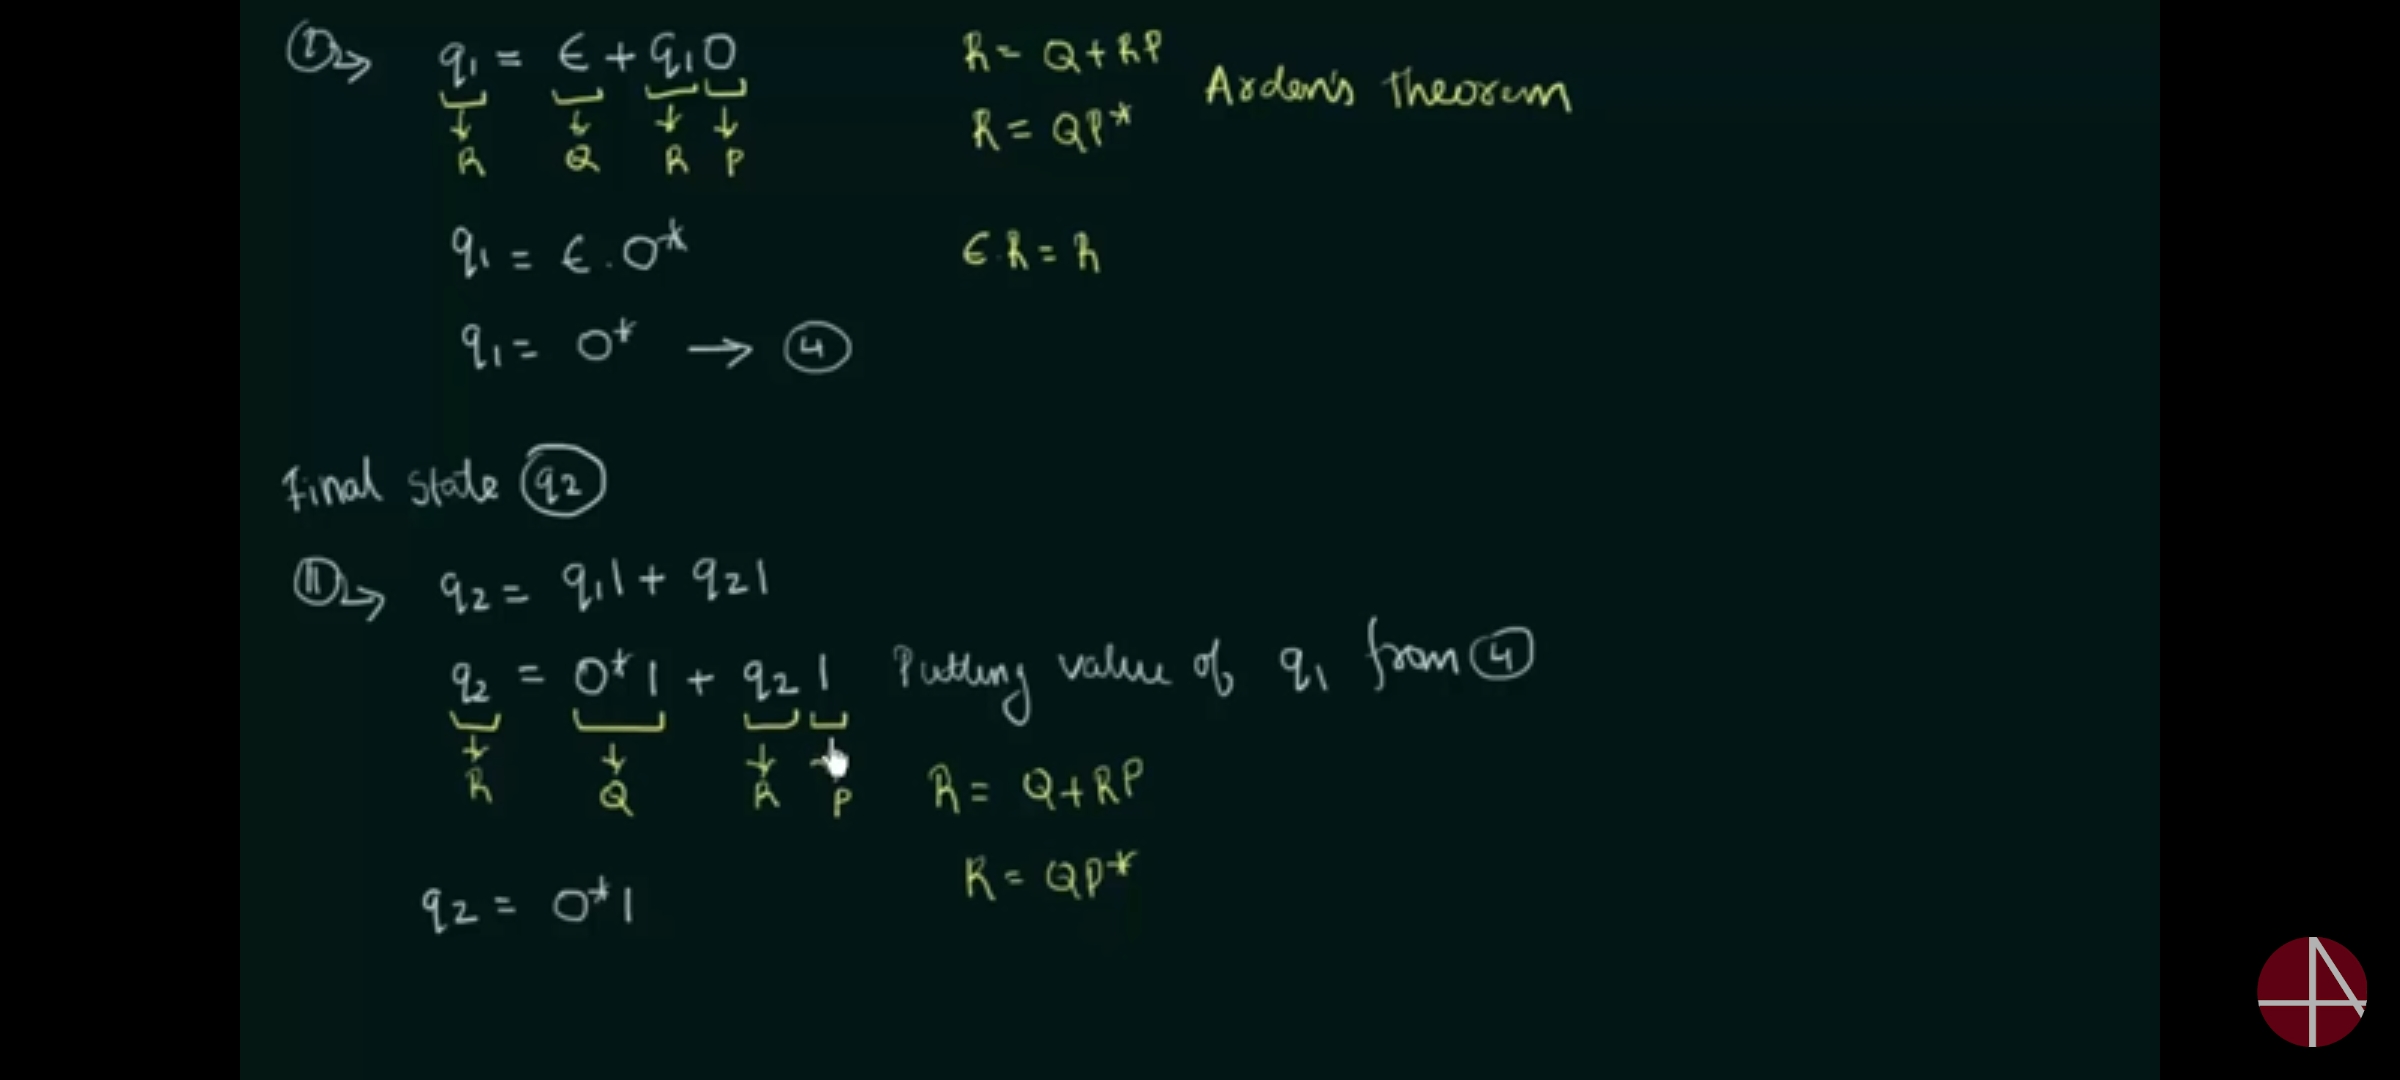 ① → q₁ = ϵ + q₁0 R = Q + RP
Arden's Theorem
R Q R P R = QP*
q₁ = ϵ . 0* ϵ.R = R
q₁ = 0* → ④
Final State q₂
⑪ → q₂ = q₁1 + q₂1
q₂ = 0*1 + q₂1 Putting value of q₁ from ④
R Q R P R = Q + RP
q₂ = 0*1 R = QP*